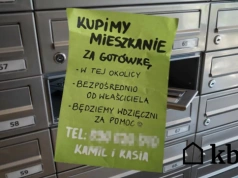 KUPIMY
MIESZKANIE
ZA GOTÓWKĘ
- W TEJ OKOLICY
- BEZPOŚREDNIO
OD WŁAŚCICIELA
- BĘDZIEMY WDZIĘCZNI
ZA POMOC
TEL:
KAMIL I KASIA
57
58
66
kb